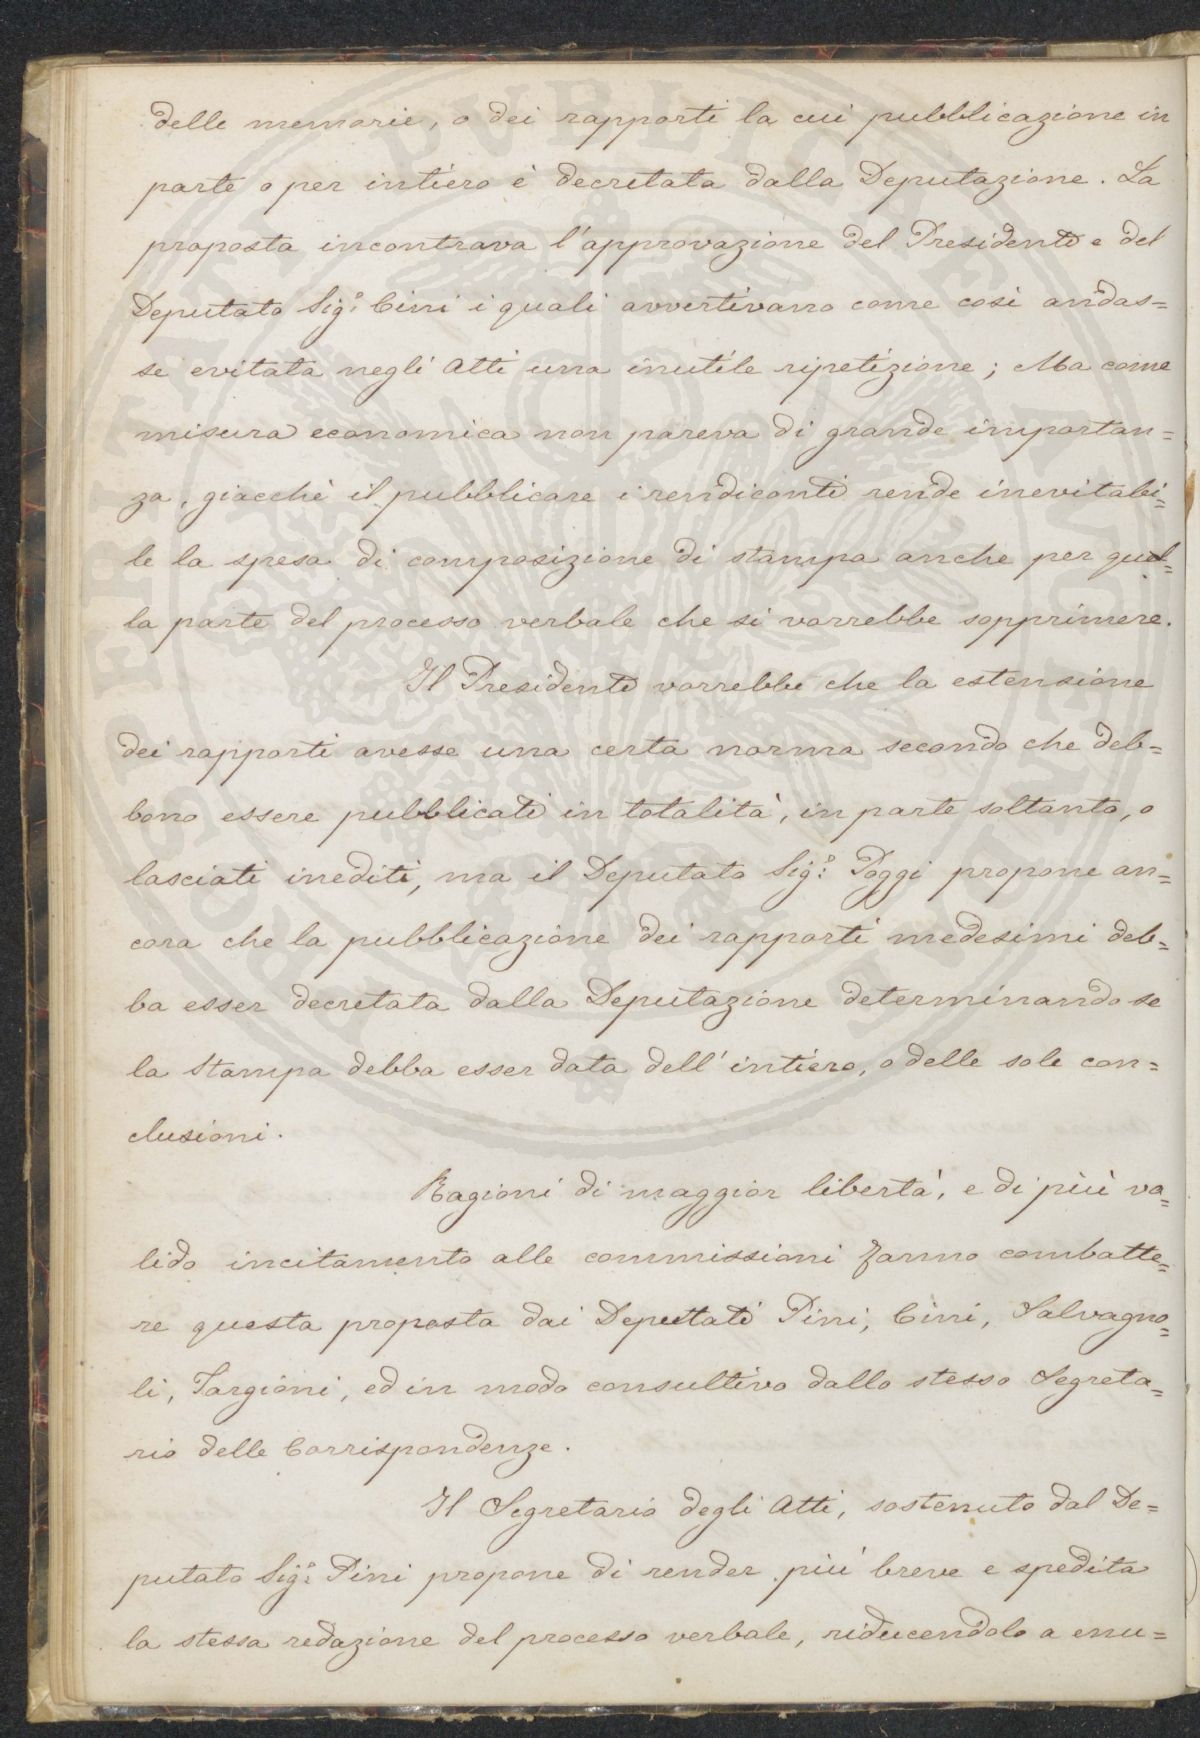 delle memorie, o dei rapporti la cui pubblicazione in
parte o per intiero è decretata dalla Deputazione. La
proposta incontrava l'approvazione del Presidente e del
Deputato Sigr. Cini i quali avvertivano come così andas=
se evitata negli Atti una inutile ripetizione; Ma come
misura economica non pareva di grande importan=
za, giacchè il pubblicare i rendiconti rende inevitabi=
le la spesa di composizione di stampa anche per quel=
la parte del processo verbale che si vorrebbe sopprimere.
Il Presidente vorrebbe che la estensione
dei rapporti avesse una certa norma secondo che deb=
bono essere pubblicati in totalità, in parte soltanto, o
lasciati inediti, ma il Deputato Sigr. Poggi propone an=
cora che la pubblicazione dei rapporti medesimi deb=
ba esser decretata dalla Deputazione determinando se
la Stampa debba esser data dell'intiero, o delle sole con=
clusioni.
Ragioni di maggior libertà, e di più va=
lido incitamento alle commissioni fanno combatte=
re questa proposta dai Deputati Pini, Cini, Salvagno=
li, Targioni, ed in modo consultivo dallo stesso Segreta=
rio delle Corrispondenze.
Il Segretario degli Atti, sostenuto dal De=
putato Sigr. Pini propone di render più breve e spedita
la stessa redazione del processo verbale, riducendolo a enu=